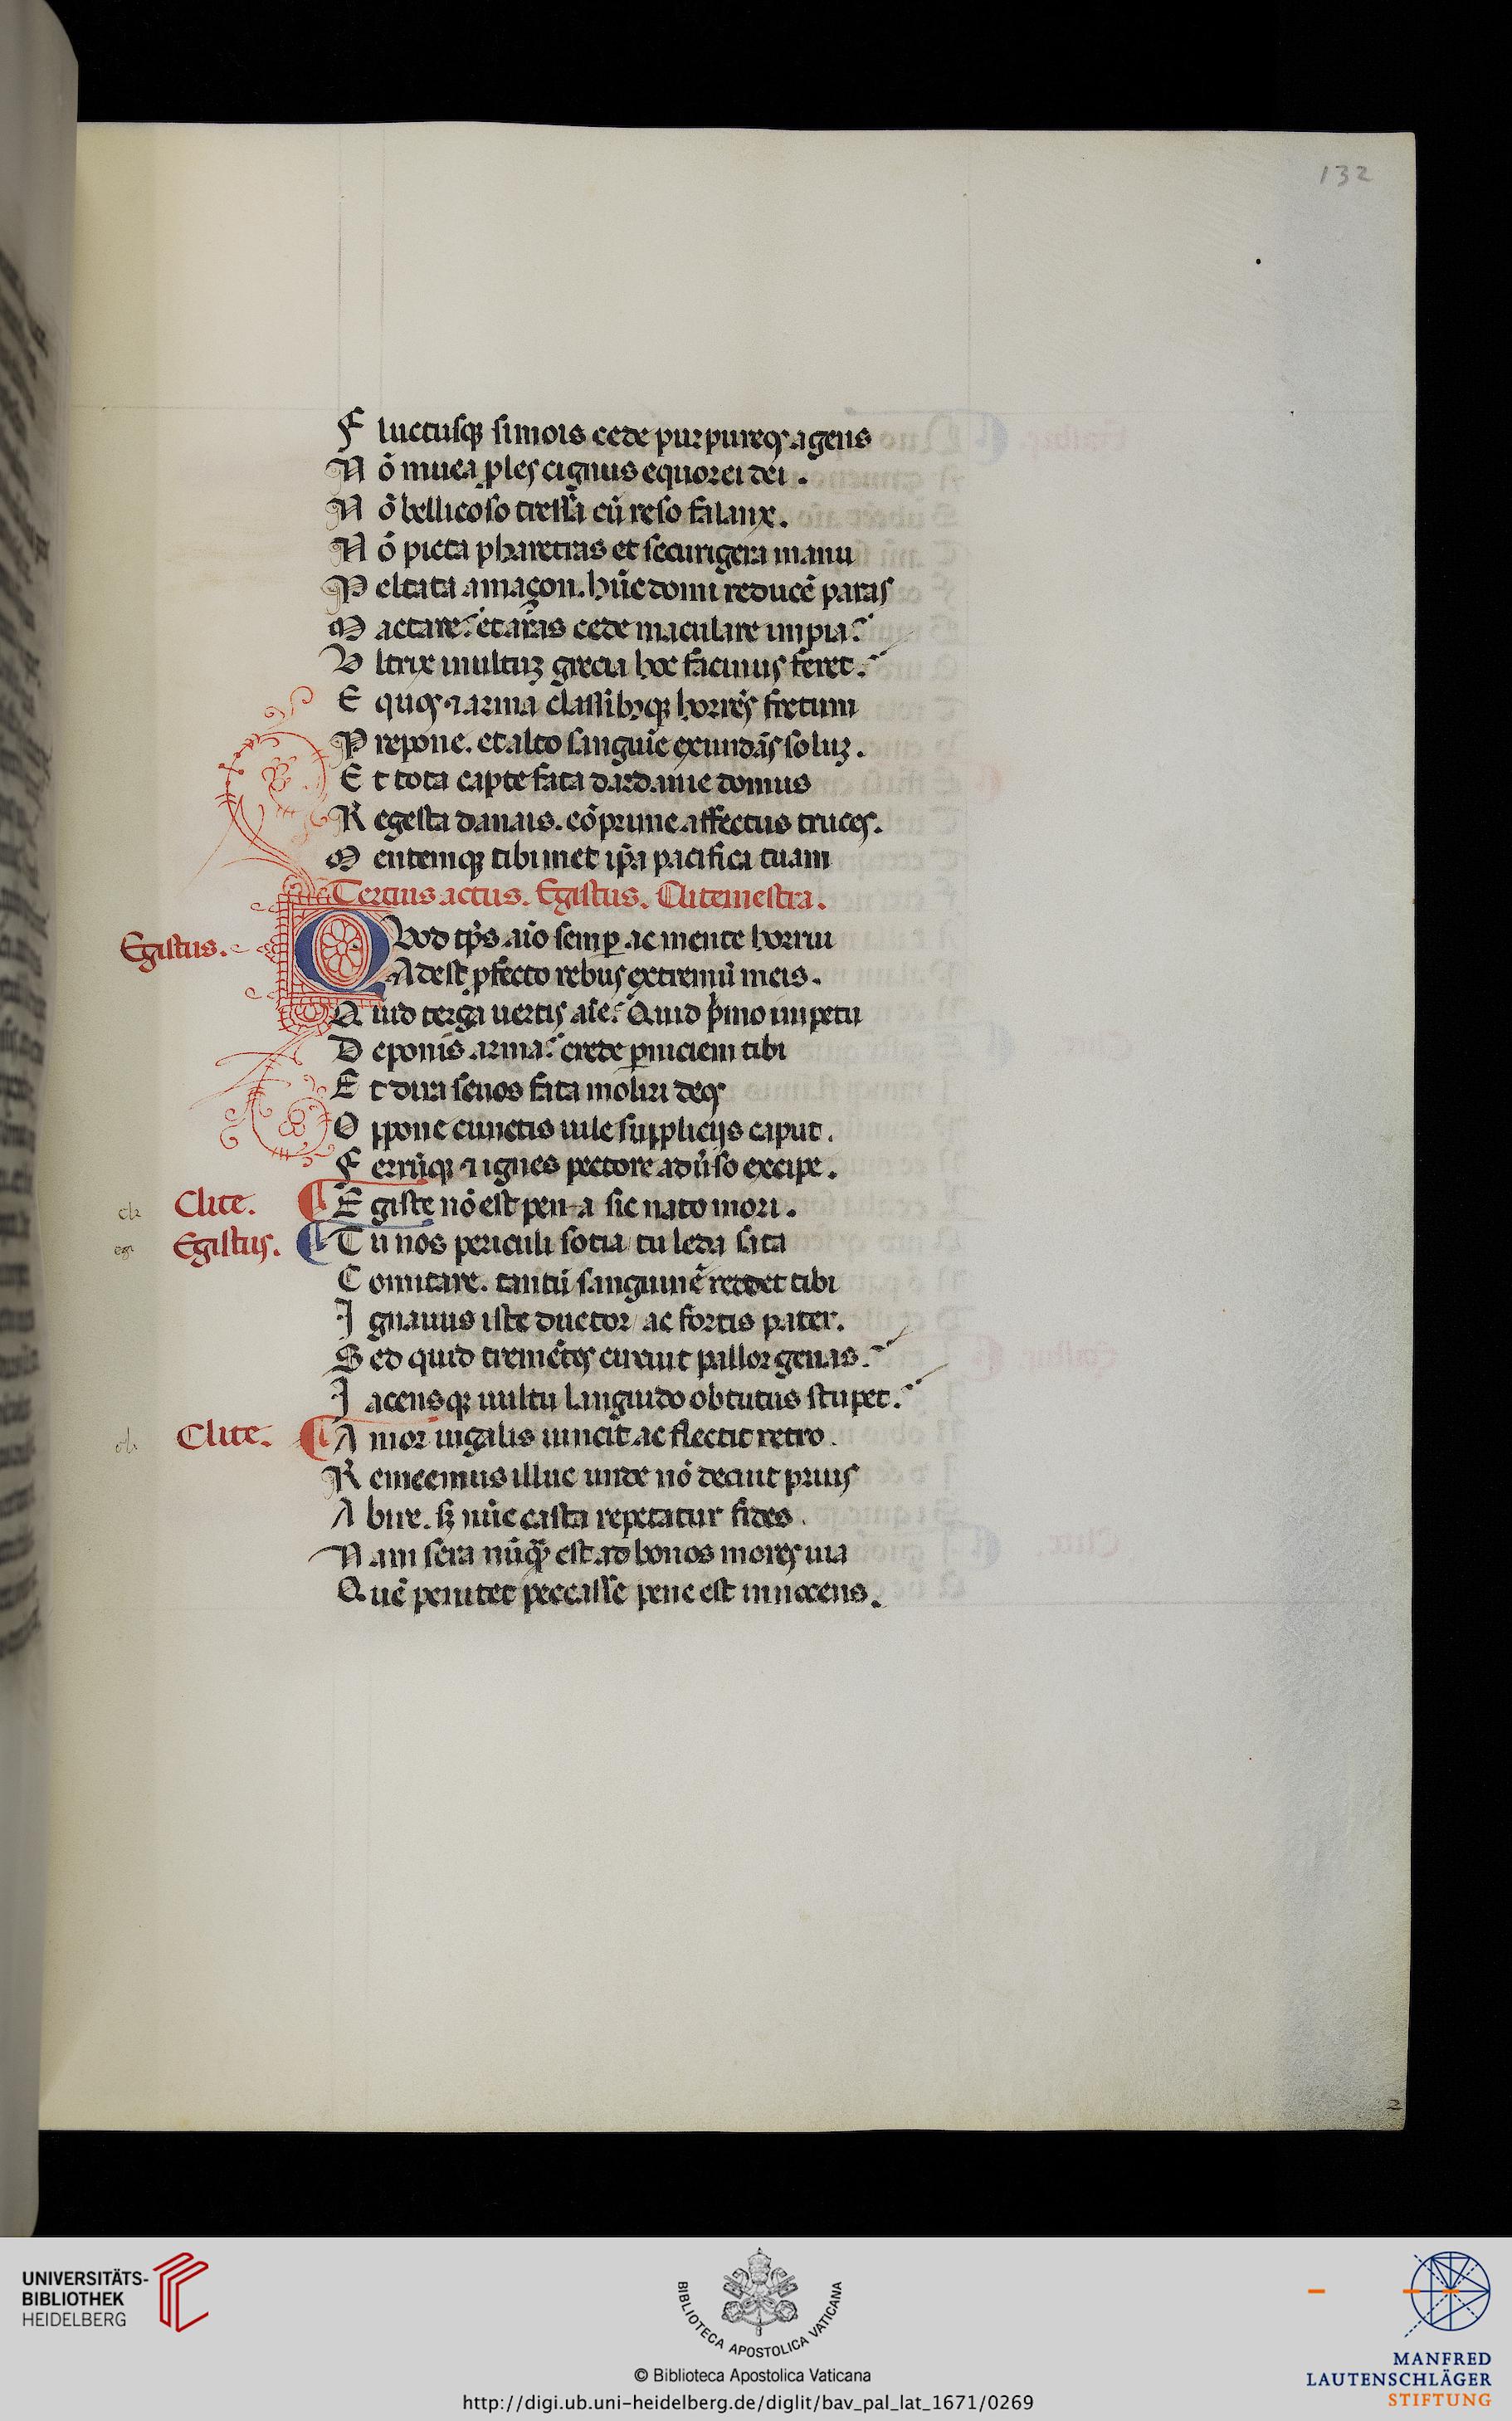 132
F luctusq; simois cede purpureos agens
N ō niuea ples cignus equorei dei .
N ō bellicoso tressa cū reso falanx .
N ō picta pharetras et securigera manu
P eltata amaçon. hūc domi reducē paras
M actare? et aras cede maculare impia?
V ltrix inultuz grecia hoc facinus feret?
E quos ⁊ arma classibꝫq; horrēs fretum
P repone. et alto sanguīe exundās soluz .
E t tota capte fata dardanie domus
R egesta danais. cōprime affectus truces.
M entemq; tibimet ip̄a pacifica tuam
Tertius actus. Egistus. Clitemestra.
Egistus.
QVod tp̄s aīo semꝑ ac mente horrui
Adest ꝓfecto rebus extremū meis .
Q uid terga uertis aīe? Quid p̄mo impetu
D eponis arma? crede ꝑniciem tibi
E t dira seuos fata moliri deos
O ppone cunctis uile supplicijs caput .
F errūq; ⁊ ignes pectore aduˢso excipe .
cli
Clite.
E giste nō est pena sic nato mori .
eg
Egistus.
T u nos periculi socia tu leda sata
C omitare. tantū sanguinē reddet tibi
I gnauus iste ductor ac fortis pater.
S ed quid tremētes circuit pallor genas?
I acensq; uultu languido obtutus stupet?
cli
Clite.
A mor iugalis uincit ac flectit retro .
R emeemus illuc unde nō decuit prius
A bire. sꝫ nūc casta repetatur fides .
N am sera nūq̄ est ad bonos mores uia
Q uē penitet peccasse pene est innocens .
2
UNIVERSITÄTS-
BIBLIOTHEK
HEIDELBERG
BIBLIOTECA APOSTOLICA VATICANA
© Biblioteca Apostolica Vaticana
http://digi.ub.uni-heidelberg.de/diglit/bav_pal_lat_1671/0269
MANFRED
LAUTENSCHLÄGER
STIFTUNG